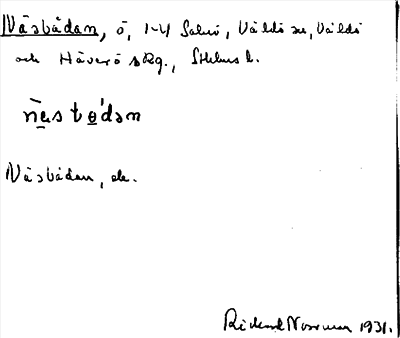 Näsbådan, ö, 1-4 Salnö, Väldö sn, Väldö
och Häverö skg., Sthlms l.
näs bo̱dan
Näsbådan, ek.
Rickard Norrman 1931.